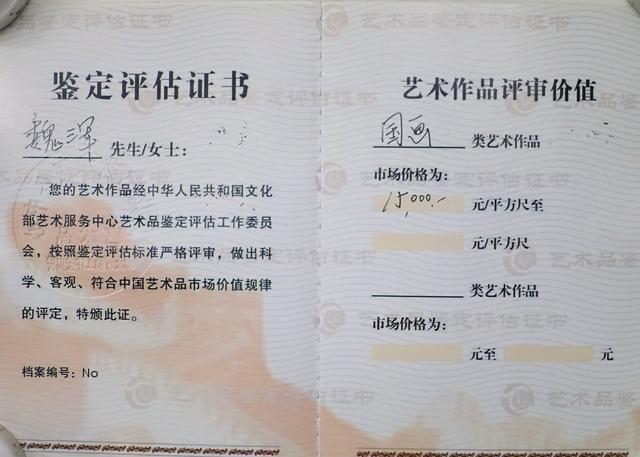 鉴定评估证书
魏泽 先生/女士：
您的艺术作品经中华人民共和国文化
部艺术服务中心艺术品鉴定评估工作委员
会，按照鉴定评估标准严格评审，做出科
学、客观、符合中国艺术品市场价值规律
的评定，特颁此证。
档案编号：No
艺术作品评审价值
国画 类艺术作品
市场价格为：
15000.- 元/平方尺至
元/平方尺
类艺术作品
市场价格为：
元至 元